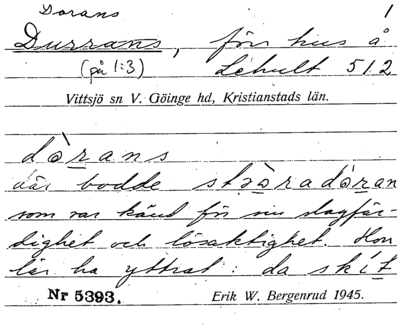 Dorans 1
Durrans, förr hus å
(på 1:3) Lehult 512
Vittsjö sn V. Göinge hd, Kristianstads län.
dòrans
där bodde stòradòran
som var känd för sin slagfär-
dighet och lösaktighet. Hon
lär ha yttrat: da skít
Nr 5393. Erik W. Bergenrud 1945.